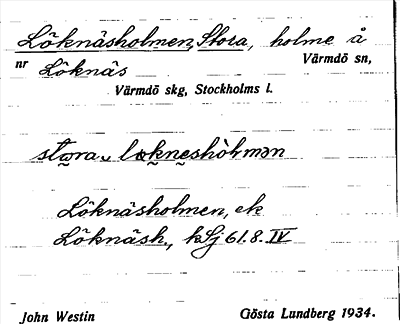 Löknäsholmen, Stora, holme å
nr Löknäs Värmdö sn,
Värmdö skg, Stockholms l.
Löknäsholmen, ek
Löknäsh., kSj 61.8. IV
John Westin Gösta Lundberg 1934.